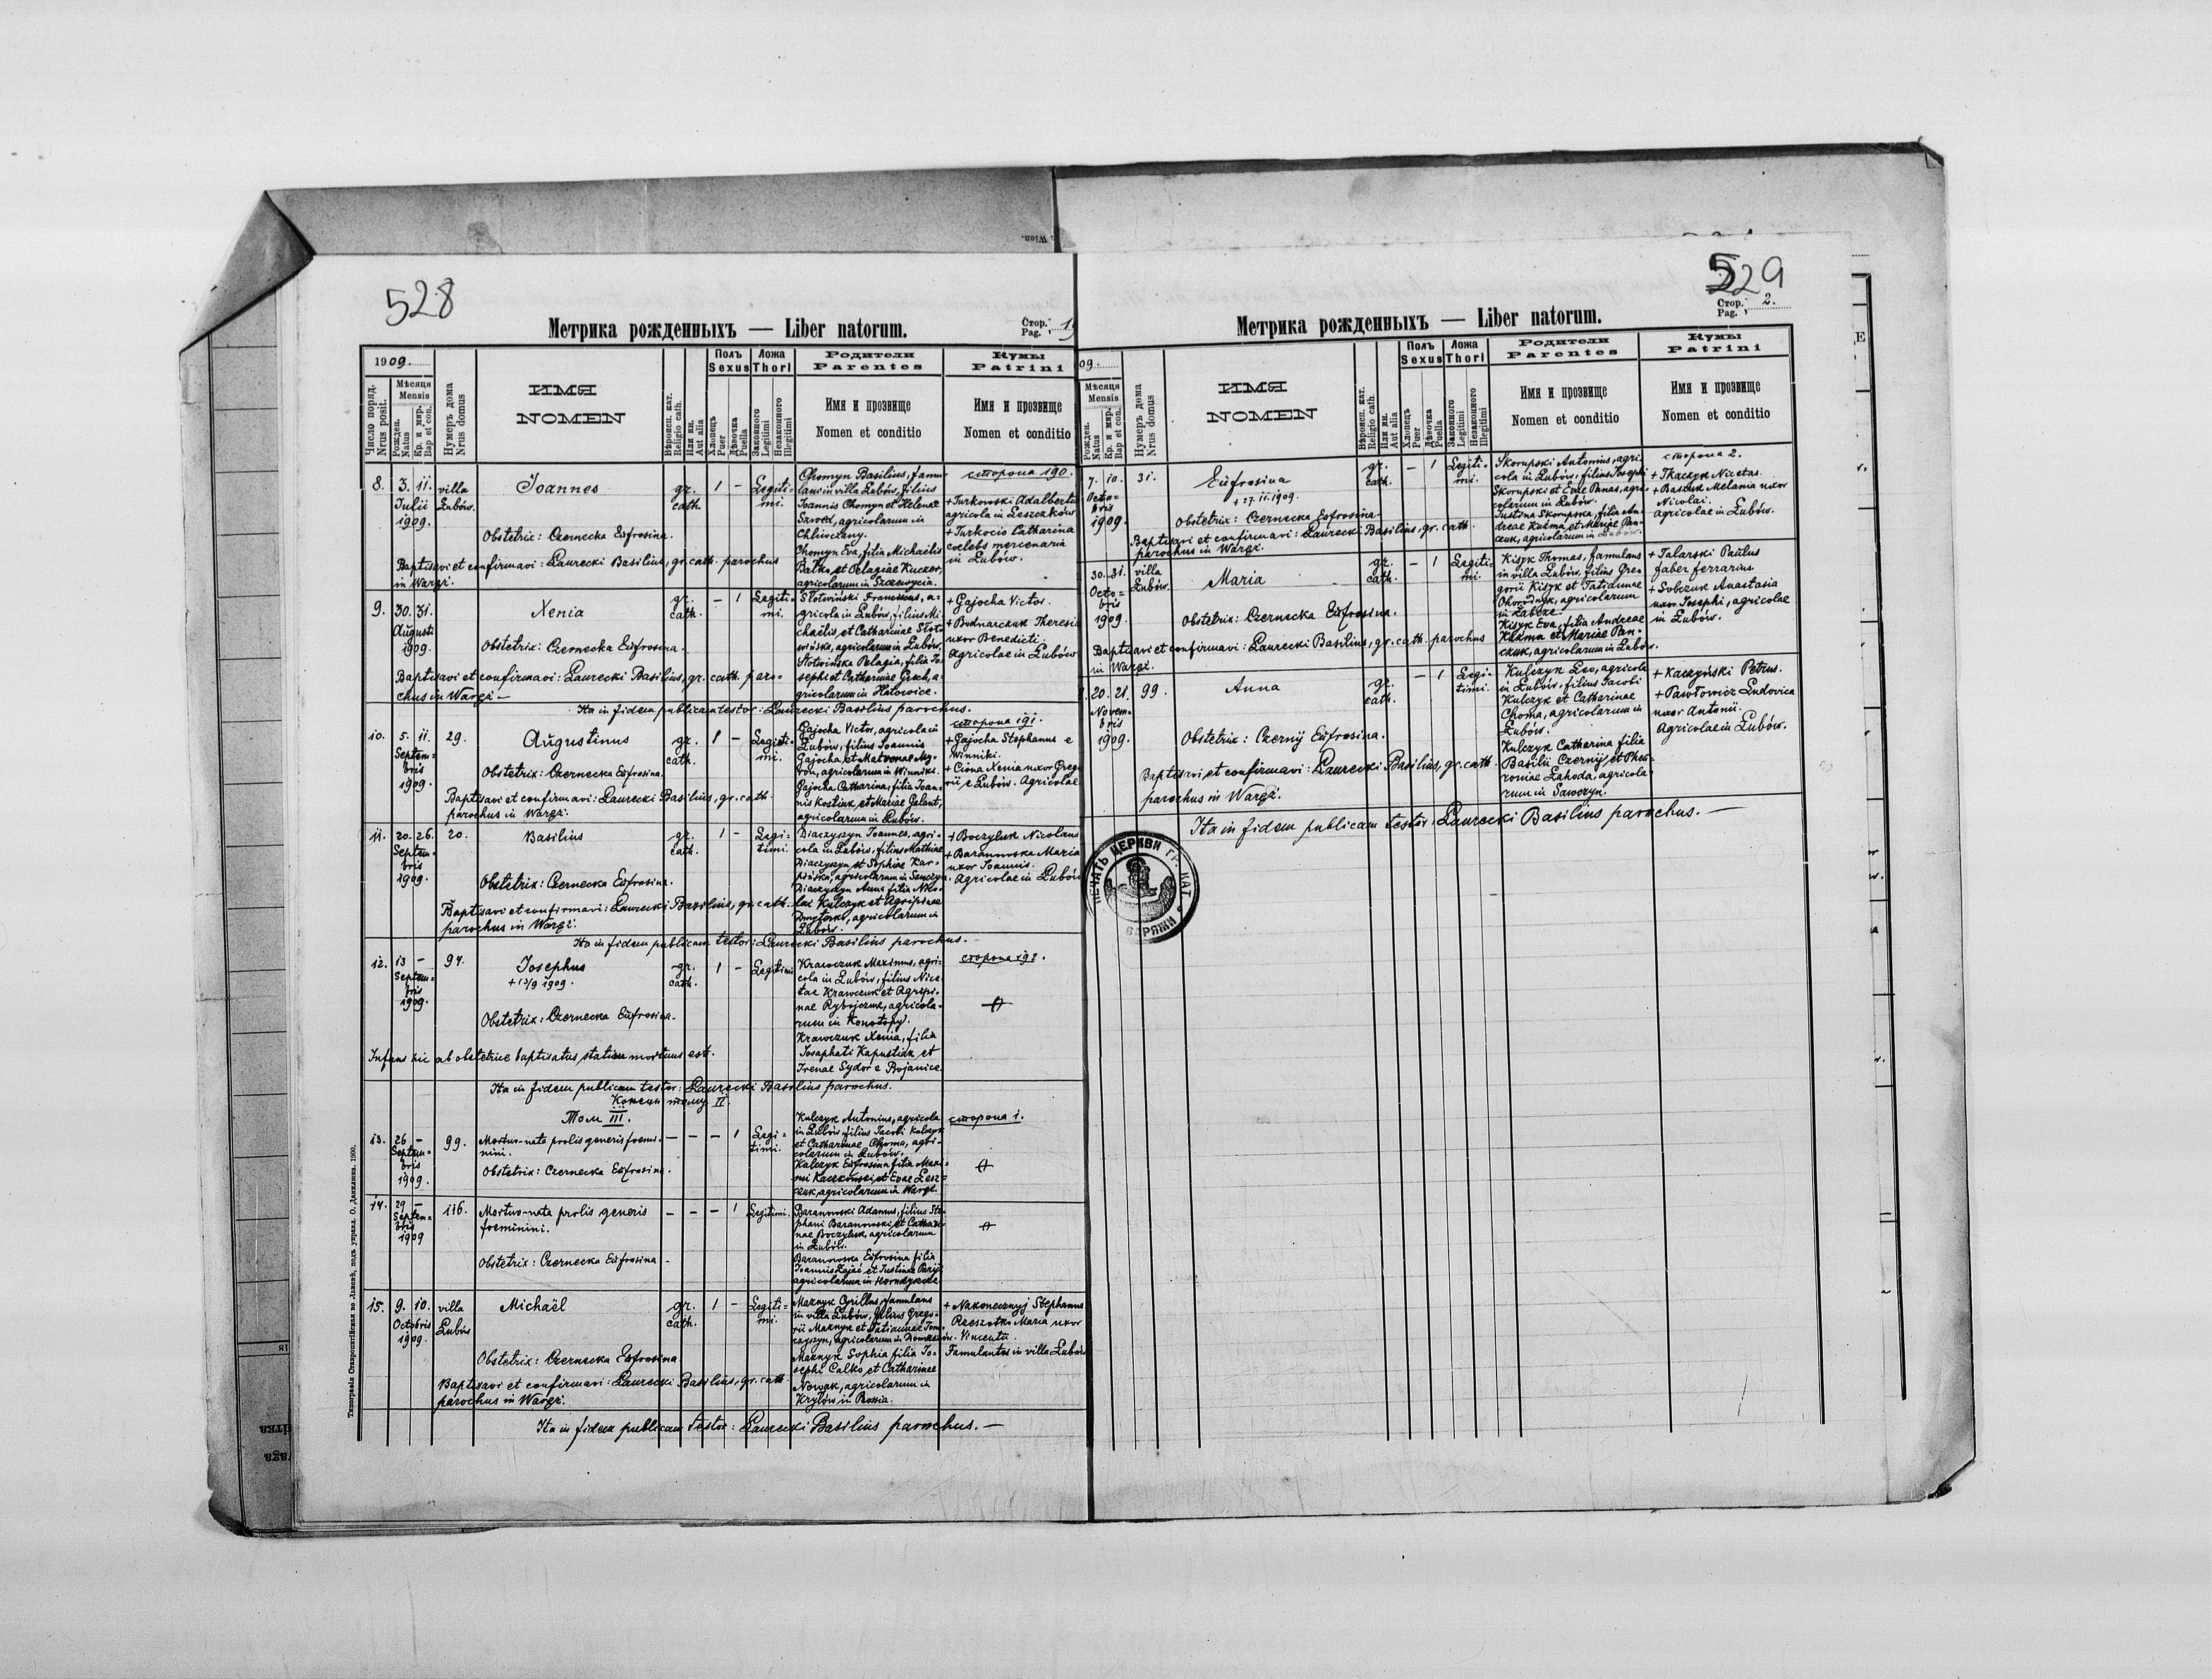 528
Метрика рожденныхъ — Liber natorum.
Стор. Pag.
1909.
Число поряд. Nrus posit.
Мѣсяця Mensis
Рожден. Natus
Кр. и мир. Bap et con.
Нумеръ дома Nrus domus
ИМЯ
NOMEN
Вѣроисп. кат. Religio cath.
Или ин. Aut alia
Полъ Sexus
Хлопецъ Puer
Дѣвочка Puella
Ложа Thori
Законного Legitimi
Незаконного Illegitimi
Родители
Parentes
Имя и прозвище
Nomen et conditio
Кумы
Patrini
Имя и прозвище
Nomen et conditio
8. 3. 11. Julii 1909. villa Łubów.
Joannes
gr. cath. 1 – Legitimi.
Obstetrix: Czernecka Eufrosina.
Baptisavi et confirmavi: Laurecki Basilius, gr. cath. parochus
in Waręż.
Chomyn Basilius, famu-
lans in villa Łubów, filius
Joannis Chomyn et Helenae
Szwed, agricolarum in
Chłusczany.
Chomyn Eva, filia Michaëlis
Balko et Pelagiae Kuczer,
agricolarum in Szczewycia.
сторона 190.
+ Turkowski Adalbertu
agricola in Leszczków
+ Turkocio Catharina
coelebs mercenaria
in Łubów.
9. 30. 31. Augusti 1909.
Xenia
gr. cath. – 1 Legitimi.
Obstetrix: Czernecka Eufrosina.
Baptisavi et confirmavi: Laurecki Basilius, gr. cath. paro-
chus in Waręż –
Słotwiński Franciscus, a-
gricola in Łubów, filius Mi-
chaëlis, et Catharinae Słot-
wińska, agricolarum in Łubów,
Słotwińska Pelagia, filia Jo-
sephi et Catharinae Gech, a-
gricolarum in Hołowice.
+ Gajocha Victor.
+ Bodnarczuk Theresia
uxor Benedicti.
Agricolae in Łubów
Ita in fidem publicam testor: Laurecki Basilius parochus.
10. 5. 11. Septembris 1909. 29.
Augustinus
gr. cath. 1 – Legitimi.
Obstetrix: Czernecka Eufrosina.
Baptisavi et confirmavi: Laurecki Basilius, gr. cath.
parochus in Waręż.
Gajocha Victor, agricola in
Łubów, filius Joannis
Gajocha, et Matronae My-
ron, agricolarum in Winniki.
Gajocha Catharina, filia Joan-
nis Kostiuk, et Mariae Galant,
agricolarum in Łubów.
сторона 191.
+ Gajocha Stephanus e
Winniki.
+ Ciona Xenia uxor Greg
rii e Łubów. Agricolae
11. 20. 26. Septembris 1909. 20.
Basilius
gr. cath. 1 – Legitimi.
Obstetrix: Czernecka Eufrosina.
Baptisavi et confirmavi: Laurecki Basilius, gr. cath.
parochus in Waręż.
Diaczyszyn Joannes, agri-
cola in Łubów, filius Mathiae
Diaczyszyn, et Sophiae Kar-
pińska, agricolarum in Sawczyn.
Diaczyszyn Anna filia Nico-
lai Kulczyk et Agripinae
Dmyterko, agricolarum in
Łubów.
+ Boczyluk Nicolaus
+ Baranowska Maria
uxor Joannis.
Agricolae in Łubów
Ita in fidem publicam testor: Laurecki Basilius parochus.
12. 13 – Septembris 1909. 94.
Josephus
+ 13/9 1909.
gr. cath. 1 – Legitimi
Obstetrix: Czernecka Eufrosina.
Infans hic ab obstetrice baptisatus statim mortuus est.
Krawczuk Maximus, agri-
cola in Łubów, filius Nice-
tae Krawczuk et Agripi-
nae Rybojczuk, agricola-
rum in Konotopy.
Krawczuk Xenia, filia
Josaphati Kapustiak et
Irenae Sydor e Bojanice
сторона 192.
Ita in fidem publicam testor: Laurecki Basilius parochus.
Конецъ тому II.
Том III.
13. 26 – Septembris 1909. 99.
Mortuo-nata prolis generis foemi-
nini.
– – – 1 Legitimi.
Obstetrix: Czernecka Eufrosina.
Kulczyk Antonius, agricola
in Łubów, filius Jacobi Kulczyk
et Catharinae Choma, agri-
colarum in Łubów.
Kulczyk Eufrosina filia Maxi-
mi Kaczkowski et Evae Lesz-
czuk, agricolarum in Waręż.
сторона 1.
14. 29 – Septembris 1909 116.
Mortuo-nata prolis generis
foeminini.
– – – 1 Legitimi.
Obstetrix: Czernecka Eufrosina –
Baranowski Adamus, filius Ste-
phani Baranowski, et Cathari-
nae Boczyluk, agricolarum
in Łubów.
Baranowska Eufrosina filia
Joannis Zajać et Justinae Paryj
agricolarum in
15. 9. 10. Octobris 1909. villa Łubów
Michaël
gr. cath. 1 – Legitimi.
Obstetrix: Czernecka Eufrosina
Baptisavi et confirmavi: Laurecki Basilius, gr. cath.
parochus in Waręż.
Maznyk Cyrillus, famulans
in villa Łubów, filius Grego-
rii Maznyk et Tatiannae Tom-
czyszyn, agricolarum in Domaszów.
Maznyk Sophia filia Jo-
sephi Calko et Catharinae
Nowak, agricolarum in
Kryłów in Rossia.
+ Nakonecznyj Stephanus
Rzeszotko Maria uxor
Vincentii.
Famulantes in villa Łubów
Ita in fidem publicam testor: Laurecki Basilius parochus. –
Типографія Ставропигійская во Львовѣ, подъ управл. О. Данилюка. 1900.
529
Метрика рожденныхъ — Liber natorum.
Стор. Pag. 2.
09.
Мѣсяця Mensis
Рожден. Natus
Кр. и мир. Bap et con.
Нумеръ дома Nrus domus
ИМЯ
NOMEN
Вѣроисп. кат. Religio cath.
Или ин. Aut alia
Полъ Sexus
Хлопецъ Puer
Дѣвочка Puella
Ложа Thori
Законного Legitimi
Незаконного Illegitimi
Родители
Parentes
Имя и прозвище
Nomen et conditio
Кумы
Patrini
Имя и прозвище
Nomen et conditio
7. 10. Octobris 1909. 31.
Eufrosina
+ 27.11.1909.
gr. cath. – 1 Legitimi.
Obstetrix: Czernecka Eufrosina.
Baptisavi et confirmavi: Laurecki Basilius, gr. cath.
parochus in Waręż.
Skorupski Antonius, agri-
cola in Łubów, filius Josephi
Skorupski et Evae Panas, agri-
colarum in Łubów.
Justina Skorupska, filia An-
dreae Kuźma, et Mariae Pan-
czuk, agricolarum in Łubów.
сторона 2.
+ Tkaczyk Nicetas.
+ Basziuk Melania uxor
Nicolai.
Agricolae in Łubów.
30. 31. Octobris 1909. villa Łubów.
Maria
gr. cath. – 1 Legitimi.
Obstetrix: Czernecka Eufrosina.
Baptisavi et confirmavi: Laurecki Basilius, gr. cath. parochus
in Waręż.
Kisyk Thomas, famulans
in villa Łubów, filius Gre-
gorii Kisyk et Tatiannae
Ohorodnyk, agricolarum
in Żabcze.
Kisyk Eva, filia Andreae
Kuźma et Mariae Pan-
czuk, agricolarum in Łubów.
+ Talarski Paulus
faber ferrarius.
+ Sobczuk Anastasia
uxor Josephi, agricolae
in Łubów.
20. 21. Novembris 1909. 99.
Anna
gr. cath. – 1 Legitimi.
Obstetrix: Czernij Eufrosina.
Baptisavi et confirmavi: Laurecki Basilius, gr. cath.
parochus in Waręż.
Kulczyk Leo, agricola
in Łubów, filius Jacobi
Kulczyk et Catharinae
Choma, agricolarum in
Łubów.
Kulczyk Catharina filia
Basilii Czernij et Phew-
roniae Łahoda, agricola-
rum in Sawczyn.
+ Kaczyński Petrus.
+ Pawłowicz Ludovica
uxor Antonii.
Agricolae in Łubów.
Ita in fidem publicam testor: Laurecki Basilius parochus. –
ПЕЧАТЬ ЦЕРКВИ ГР. КАТ.
ВАРЯЖИ